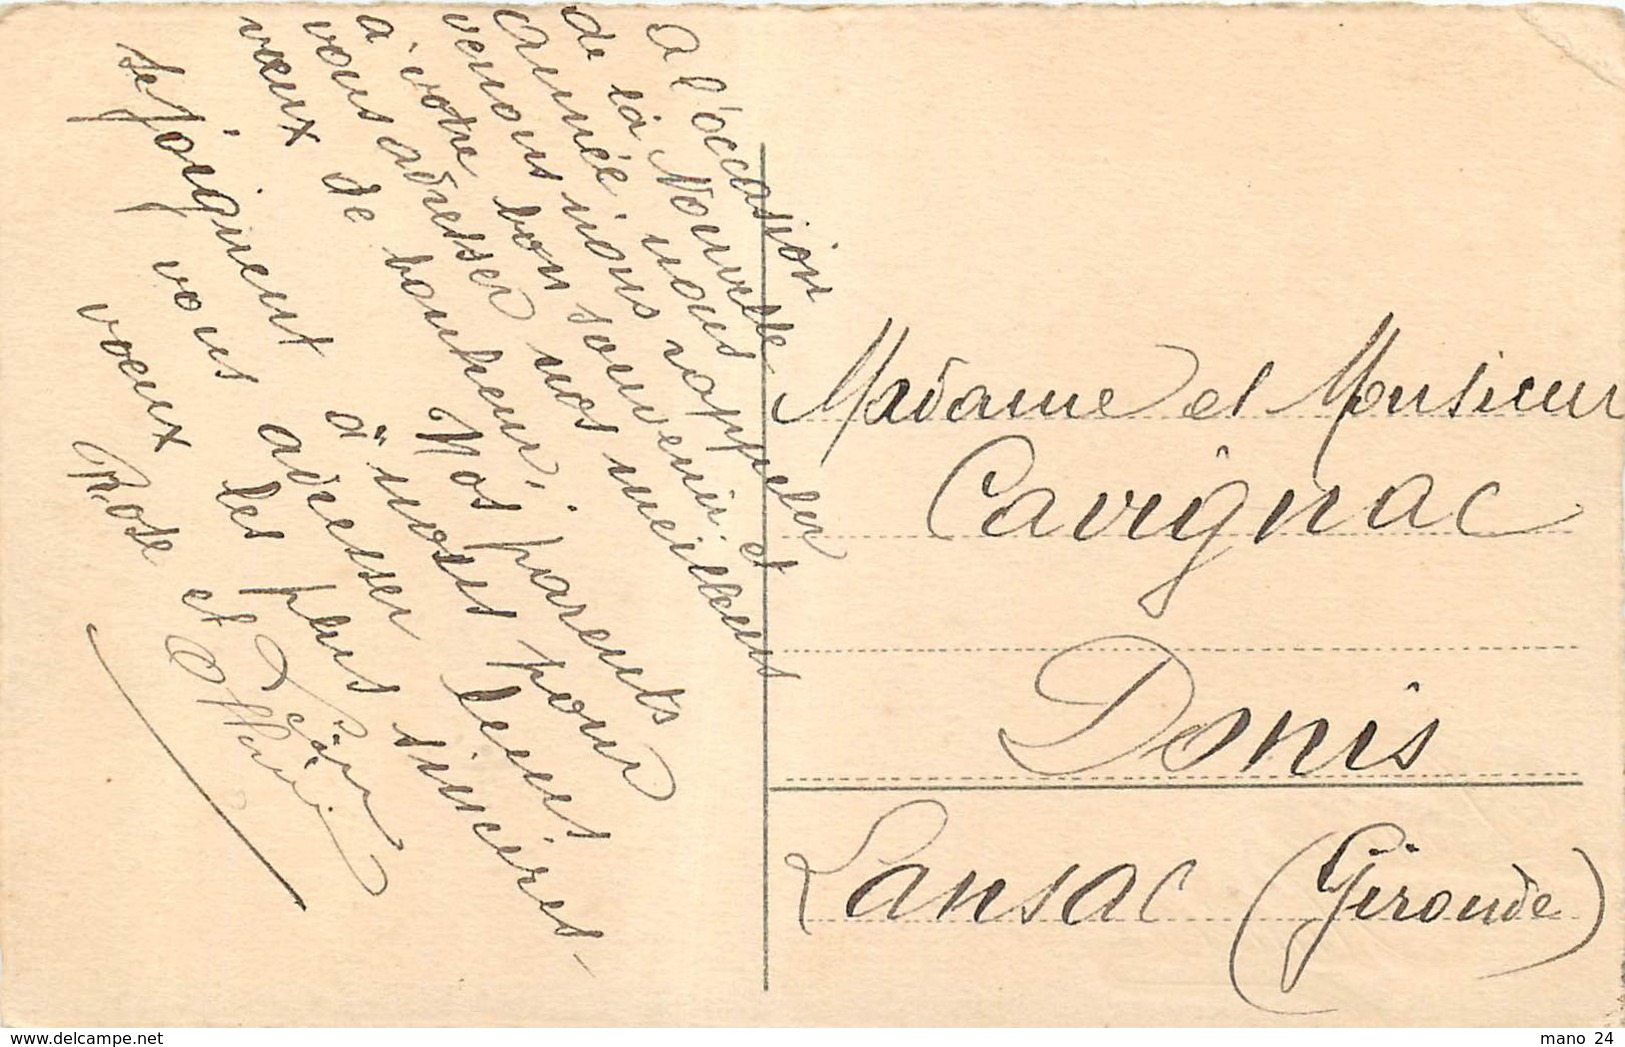 A l'occasion
de la Nouvelle
Année nous rappeler
venons nous et
à votre bon souvenir
vous adresser nos meilleurs
vœux de bonheur.
Nos parents
se joignent à nous pour
vous adresser leurs
vœux les plus sincères-
Rose et
Madame et Monsieur
Cavignac
Donis
Lansac (Gironde)
www.delcampe.net
mano 24